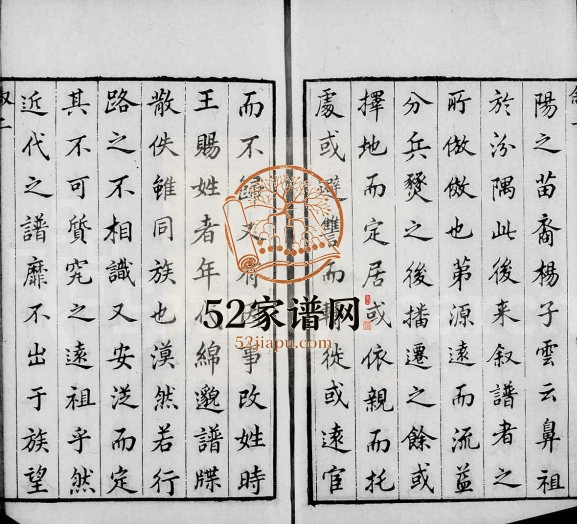 陽之苗裔楊子雲云鼻祖
於汾隅此後来叙譜者之
所倣倣也第源遠而流益
分兵燹之後播遷之餘或
擇地而定居或依親而托
處或避讐而轉徙或遠宦
而不歸又有因事改姓時
王賜姓者年代綿邈譜牒
散佚雖同族也漠然若行
路之不相識又安從而定
其不可質究之遠祖乎然
近代之譜靡不出于族望
52家谱网
52jiapu.com